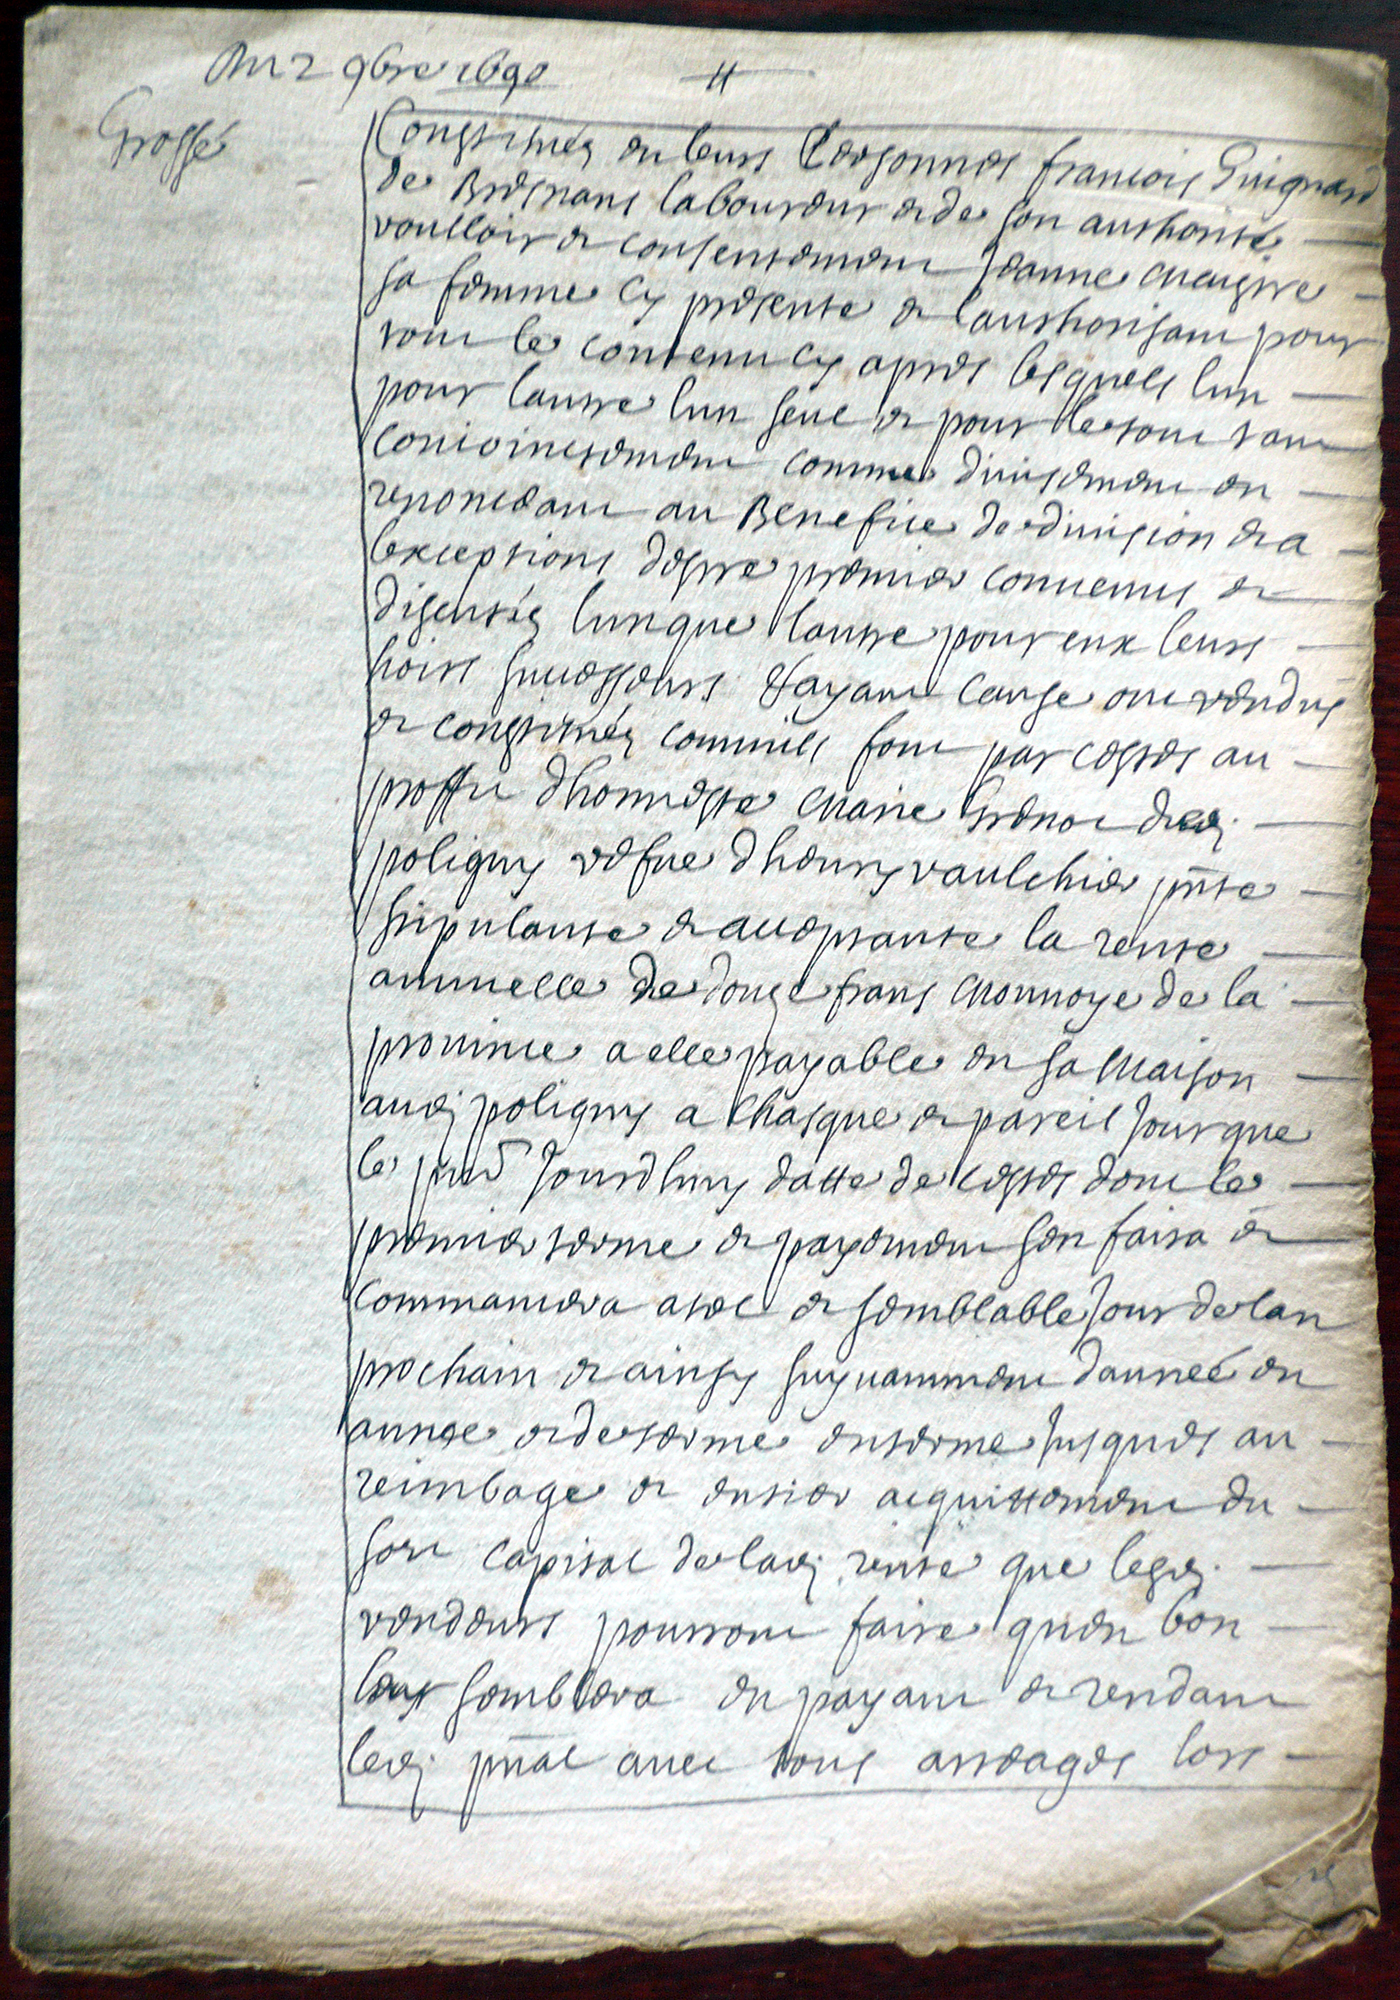 Du 2 9bre 1690
Grossé
Constitués en leurs personnes francois Guignard
de Bresnans laboureur et de son authorité
voulloir et consentement Jeanne Maistre
sa femme cy presente et lauthorisant pour
tout le contenu cy apres lesquels lun
pour lautre lun seul et pour le tout tant
conioinctement comme diuisement en
renonceant au Benefice de diuision et a
lexceptions destre premier conuenus et
discutés lun que lautre pour eux leurs
hoirs successeurs et ayant cause ont vendus
et constitués comme ils font par cestes au
proffit dhonneste Marie dud.
poligny vefue dhenry vaulchier pnte
stipulante et acceptante la rente
annuelle de douze frans Monnoye de la
prouince a elle payable en sa Maison
aud. poligny a chasque et pareil Jour que
le pnt Jourdhuy datte de cestes dont le
premier terme et payement sen faira et
commancera a tel et semblable Jour de lan
prochain et ainsy suyuamment dannée en
annee et de terme en terme Jusques au
reimbage et entier acquittement du
sort capital de lad. rente que lesd.
vendeurs pourront faire quen bon
leur semblera en payant et rendant
led. pnal auec tous arreages lors